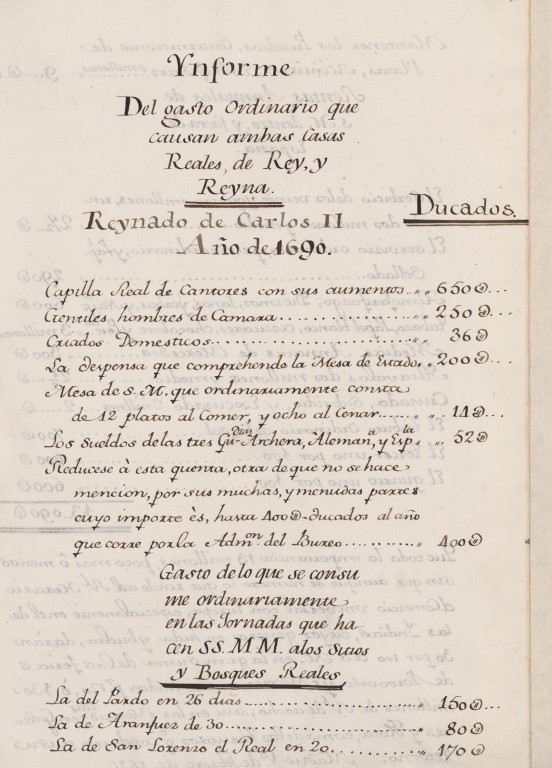 Ynforme
Del gasto Ordinario que
causan ambas Casas
Reales, de Rey, y
Reyna.
Ducados.
Reynado de Carlos II
Año de 1690.
Capilla Real de Cantores con sus aumentos.. „ „ 650@...
Gentiles hombres de Camara................ „ „ 250@...
Criados Domesticos........................ „ „ 36@
La despensa que comprehende la Mesa de Estado„ 200@...
Mesa de S. M. que ordinariamente consta
de 12 platos al Comer, y ocho al Cenar...... „ „ 11@...
Los sueldos de las tres Gu^Dias Archera, Aleman^a, y Esp^la „ „ 52@
Reducese à esta quenta, otra de que no se hace
mencion, por sus muchas, y menudas partes
cuyo importe ès, hasta 400@ ducados al año
que corre por la Adm^on. del Bureo.......... „ 400@
Gasto de lo que se consu
me ordinariamente
en las Jornadas que ha
cen SS. MM. a los Sitios
y Bosques Reales
La del Pardo en 26 dias.................. „ 150@...
La de Aranjuez de 30..................... „ 80@
La de San Lorenzo el Real en 20.......... „ 170@